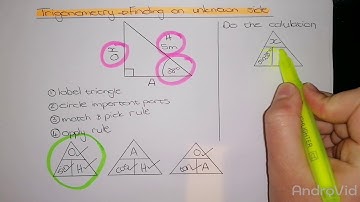 Trigonometry → Finding an unknown side
Do the calculation
x
O
H
5m
A
① label triangle
② circle important parts
③ match & pick rule
④ apply rule
x
O
H
A
H
O
A
AndroVid